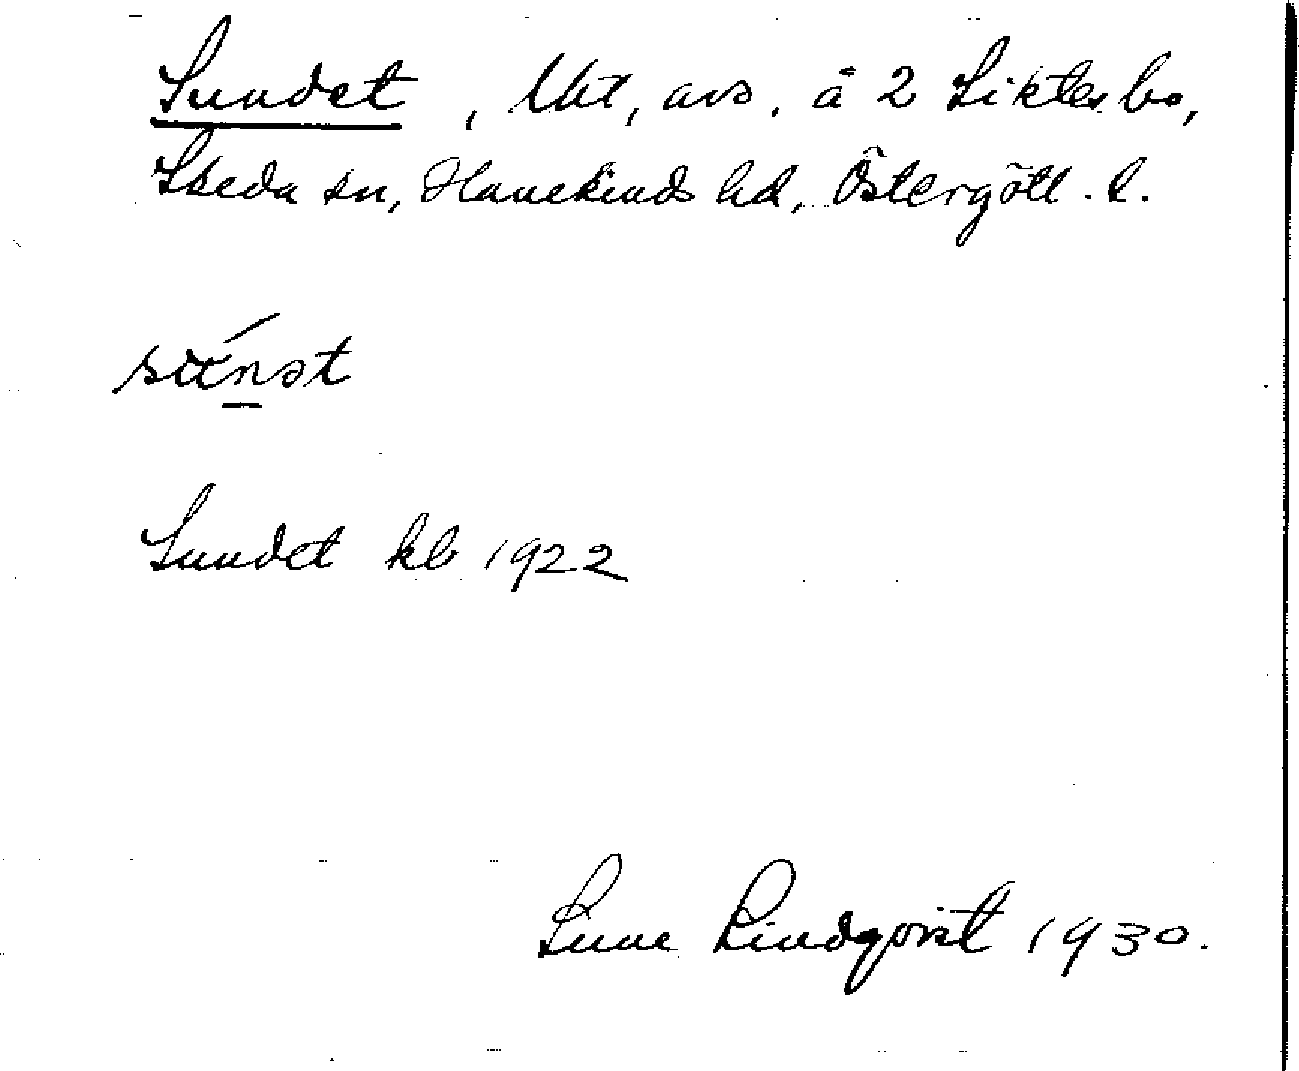 Sundet, lht, avs. å 2 Sikterbo,
Skeda sn, Hanekinds hd, Östergötl. l.
sú̄nət
Sundet kb 1922
Sune Lindqvist 1930.